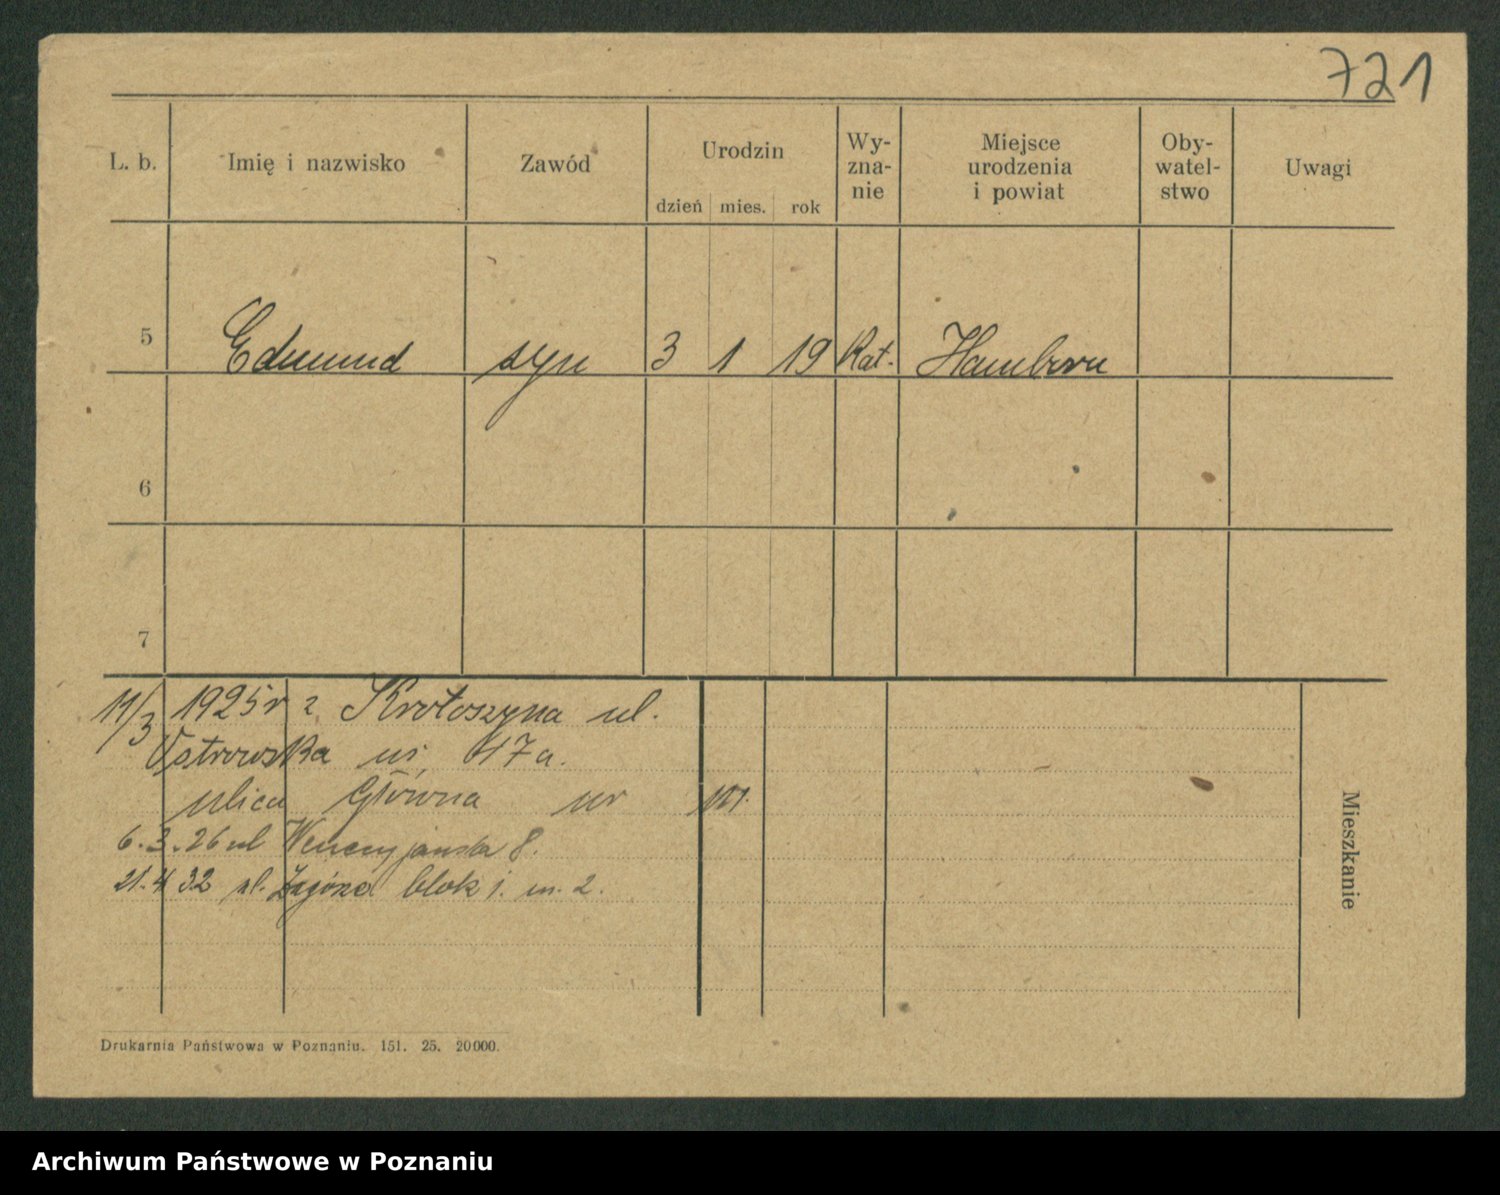 721
L. b.
Imię i nazwisko
Zawód
Urodzin
dzień mies. rok
Wy-
zna-
nie
Miejsce
urodzenia
i powiat
Oby-
watel-
stwo
Uwagi
5 Edmund syn 3 1 19 Kat. Hamborn
6
7
11/3 1925 r z Krotoszyna ul.
Ostrowska nr. 17a.
ulica Główna nr
6.3.26 ul Wenecyjanska 8.
21.4 32 ul. blok 1. m. 2.
Mieszkanie
Drukarnia Państwowa w Poznaniu. 151. 25. 20000.
Archiwum Państwowe w Poznaniu